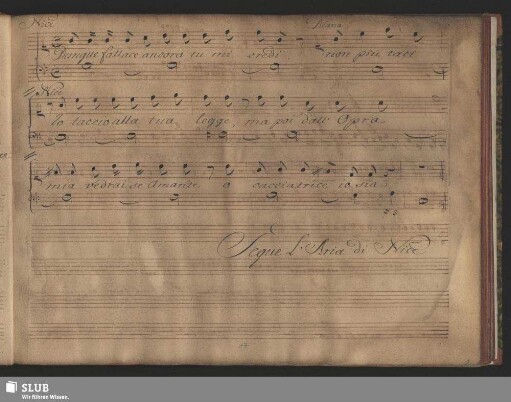 Nice
Dunque fallace ancora tu mi credi non più taci
Nice
Io taccio alla tua legge, ma poi dall' Opra
mia vedrai se Amante o cacciatrice io sia
Segue L'Aria di Nice
SLUB
Wir führen Wissen.